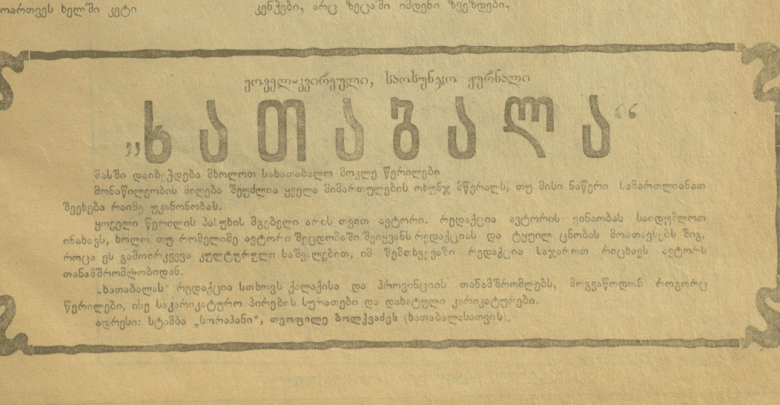 ოართვეს ხელში კეტი
კენჭები, არც ზეცაში იმდენი ზვეზდები.
ყოველ-კვირეული, საოხუნჯო ჟურნალი
„ხათაბალა“
მასში დაიბეჭდება მხოლოთ სახათაბალო მოკლე წერილები
მონაწილეობის მიღება შეუძლია ყველა მიმართულების ოხუნჯ მწერალს, თუ მისი ნაწერი სამართლიანათ
შეეხება რაიმე უკანონობას.
ყოველი წერილის პასუხის მგებელი არის თვით ავტორი. რედაქცია ავტორის ვინაობას საიდუმლოთ
ინახავს, ხოლო თუ რომელიმე ავტორი შეცდომაში შეიყვანს რედაქციას და ტყუილ ცნობას მოათავსებს შიგ,
როცა ეს გამოირკვევა კულტურული საშვალებით, იმ შემთხვევაში რედაქცია საჯაროთ რიცხავს ავტორს
თანამშრომლობიდან.
„ხათაბალას“ რედაქცია სთხოვს ქალაქისა და პროვინციის თანამშრომლებს, მოგვაწოდონ როგორც
წერილები, ისე საკარიკატურო პირების სურათები და დახატული კარიკატურები.
ადრესი: სტამბა „სორაპანი“, თეოფილე ბოლქვაძეს (ხათაბალასათვის).